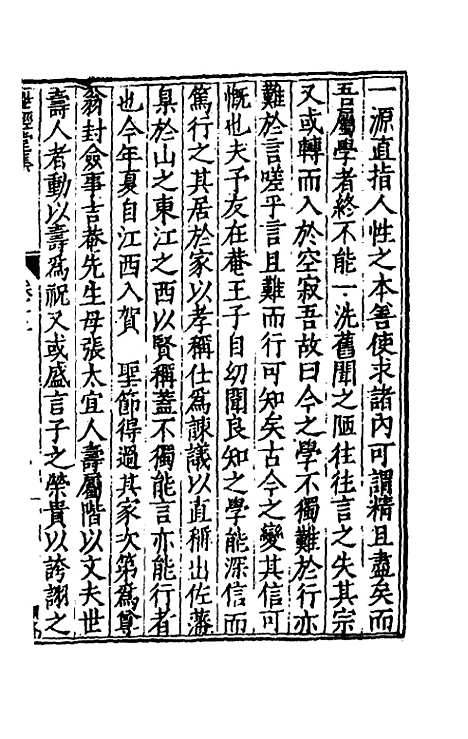 一源直指人性之本善使求諸內可謂精且盡矣而
吾屬學者終不能一洗舊聞之陋往往言之失其宗
又或轉而入於空寂吾故曰今之學不獨難於行亦
難於言嗟乎言且難而行可知矣古今之變其信可
慨也夫予友在菴王子自幼聞良知之學能深信而
篤行之其居於家以孝稱仕為諫議以直稱出佐藩
臬於山之東江之西以賢稱蓋不獨能言亦能行者
也今年夏自江西入賀 聖節得過其家次第為尊
翁封僉事吉菴先生母張太宜人壽屬階以文夫世
壽人者動以壽為祝又或盛言子之榮貴以誇詡之
世經堂集
卷十三